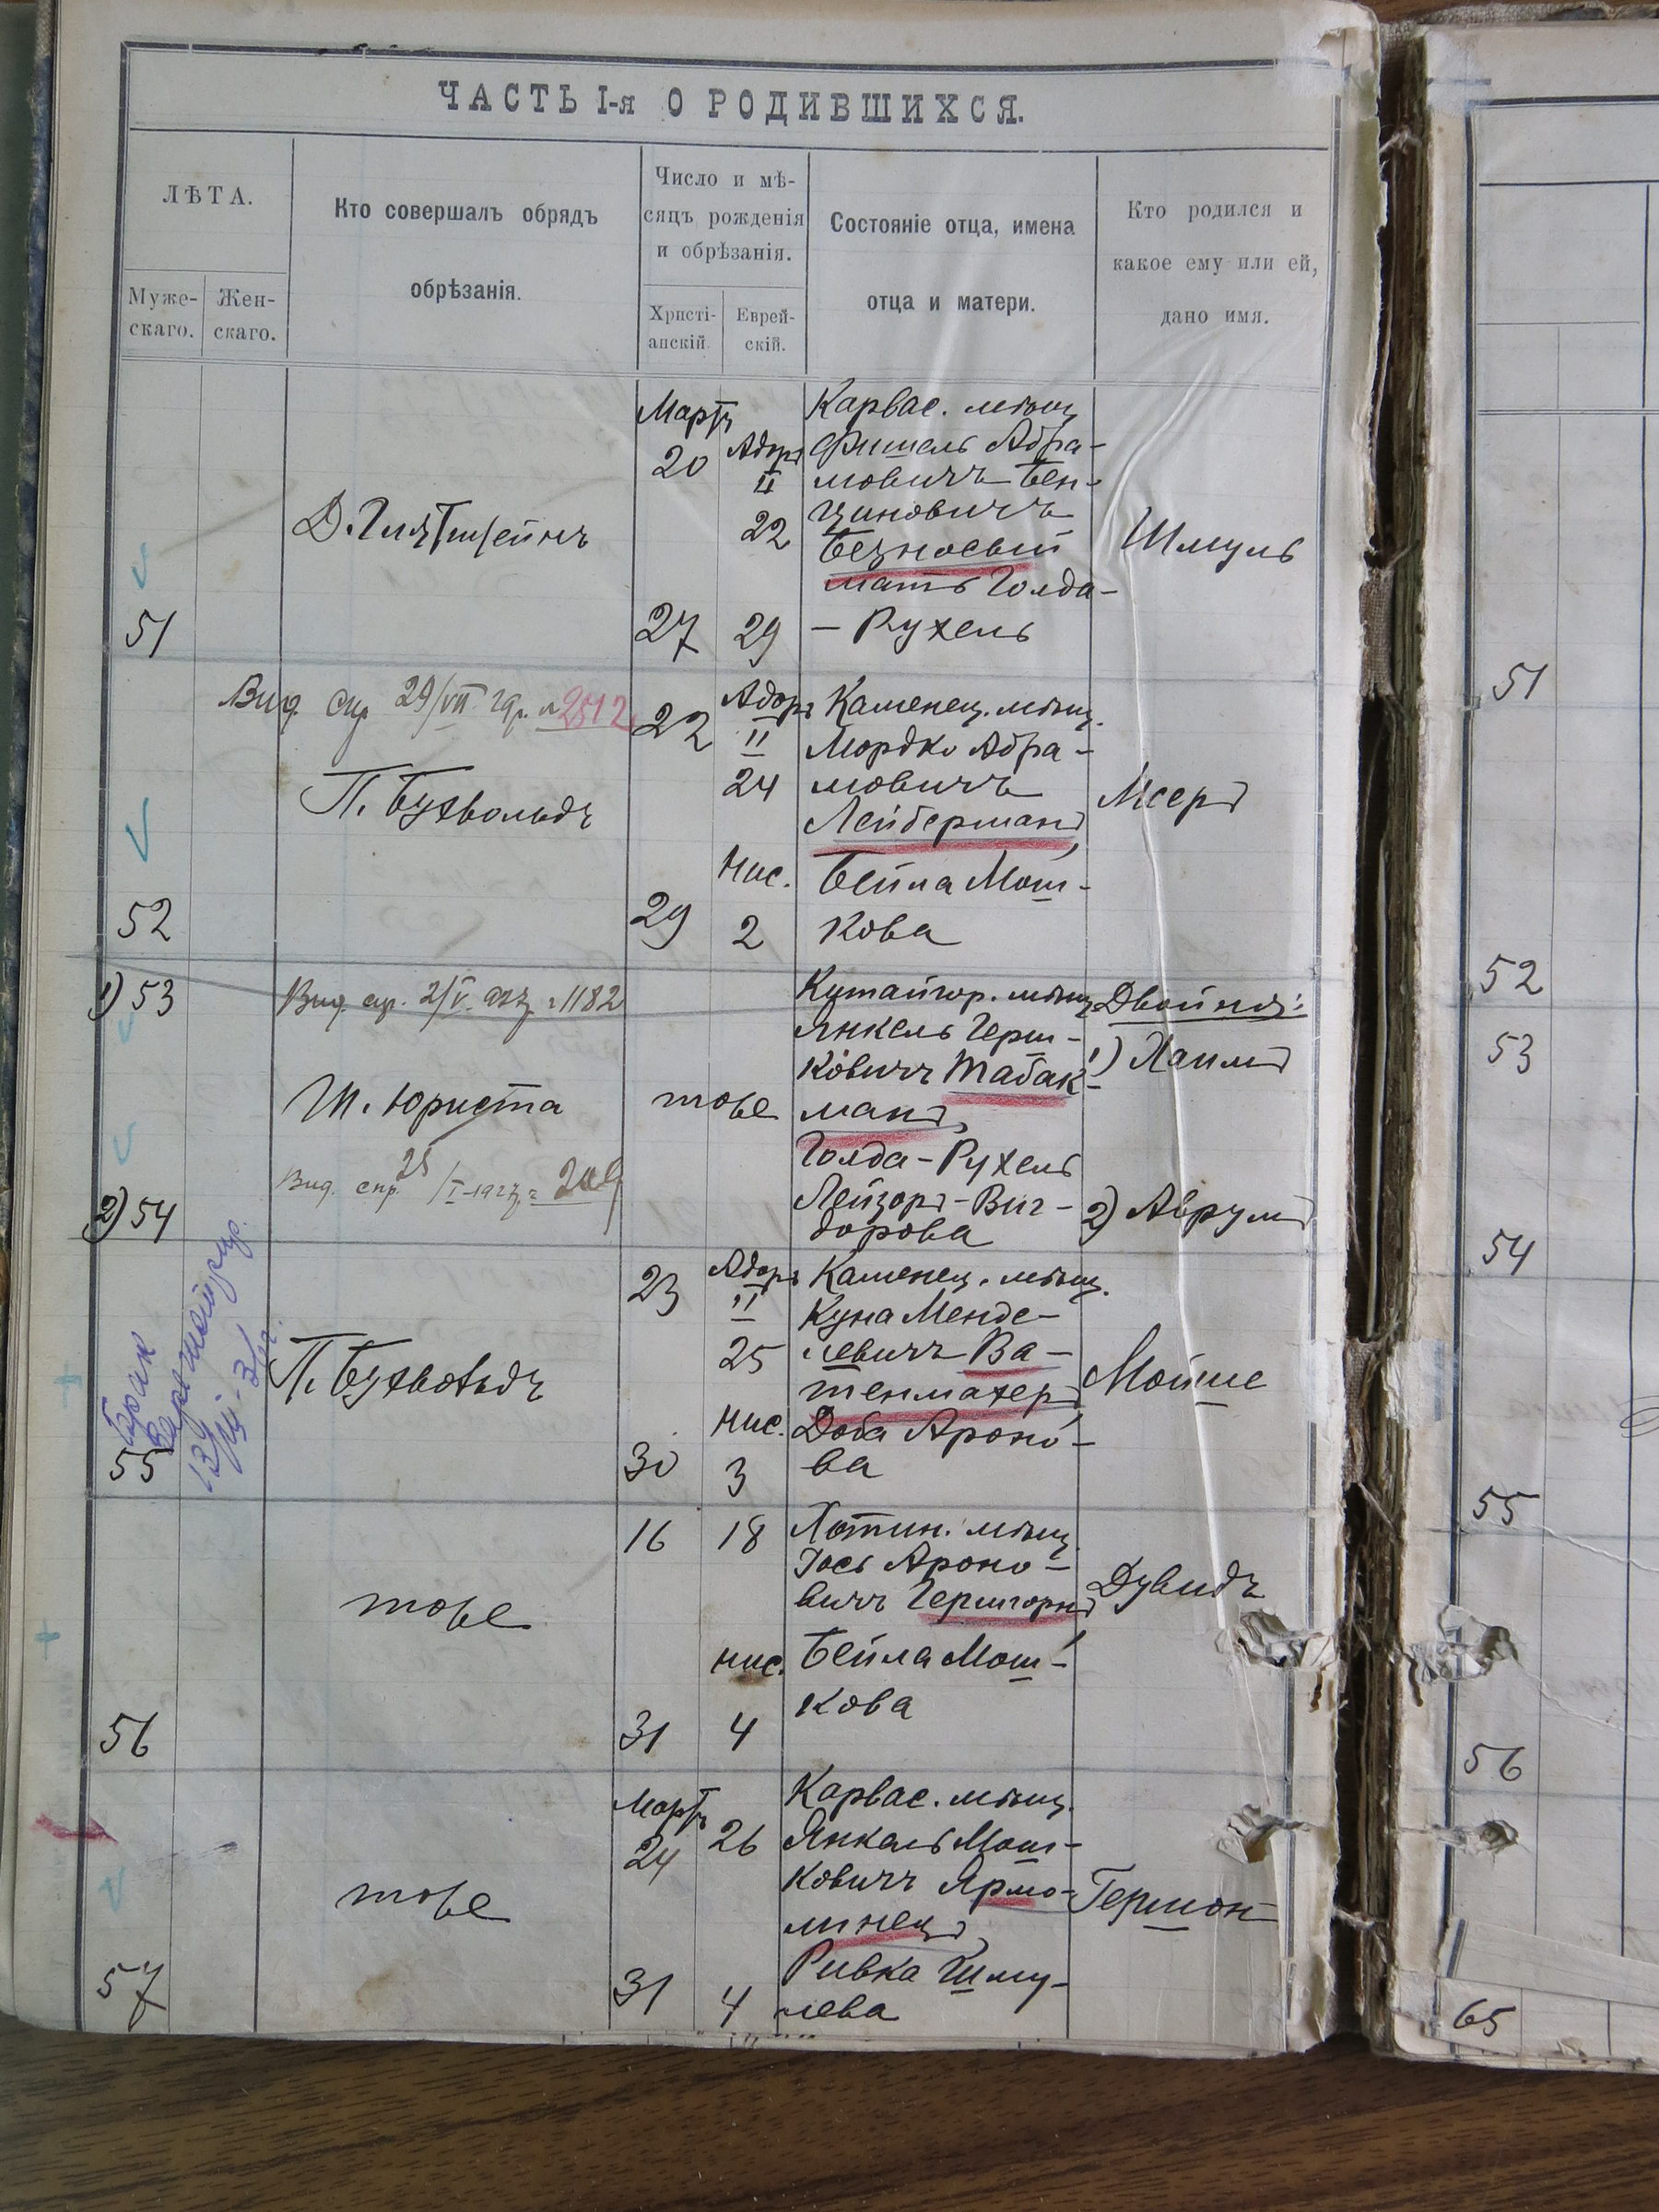 ЧАСТЬ I-я О РОДИВШИХСЯ.
ЛѢТА.
Муже-
скаго.
Жен-
скаго.
Кто совершалъ обрядъ
обрѣзанія.
Число и мѣ-
сяцъ рожденія
и обрѣзанія.
Христі-
анскій.
Еврей-
скій.
Состояніе отца, имена
отца и матери.
Кто родился и
какое ему или ей,
дано имя.
51
Мартъ
20
27
Адаръ
II
22
29
Карвас. мѣщ.
Фишель Абра-
мовичъ Бен-
ционовичъ
Безносый
мать Голда-
- Рухель
Шмуль
52
Вид. спр. 29/VII 29р. № 2512
П. Бухвольдъ
22
29
Адаръ
II
24
Нис.
2
Каменец. мѣщ.
Мордко Абра-
мовичъ
Лейберманъ,
Бейла Мош-
кова
Мееръ
1) 53
2) 54
Вид. спр. 2/V 1182
Ш. Юриста
Вид. спр. 25/I-1927
тоже
Китайгор. мѣщ.
Янкель Герш-
ковичъ Табак-
манъ,
Голда-Рухель
Лейзоръ-Виг-
дорова
Двойня:
1) Хаимъ
2) Аврумъ
55
Брак
П. Бухвольдъ
23
30
Адаръ
II
25
Нис.
3
Каменец. мѣщ.
Куна Менде-
левичъ Ва-
тенмахеръ
Доба Ароно-
ва
Мойше
56
тоже
16
31
18
Нис.
4
Хотин. мѣщ.
Іось Ароно-
вичъ Гершгорнъ,
Бейла Мош-
кова
Дувидъ
57
тоже
Мартъ
24
31
26
4
Карвас. мѣщ.
Янкель Мош-
ковичъ Ярмо-
линецъ,
Ривка Шму-
лева
Гершон
51
52
53
54
55
56
65